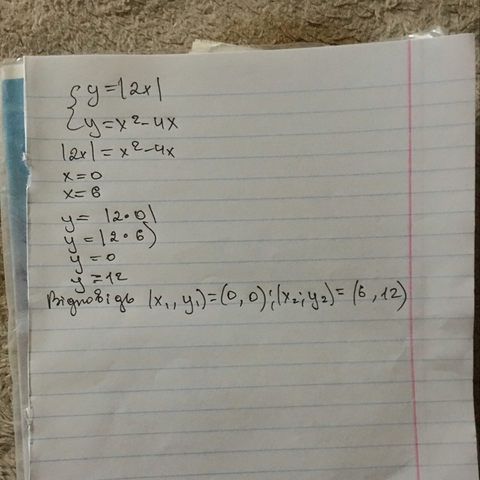 { y = |2x|
{ y = x² - 4x
|2x| = x² - 4x
x = 0
x = 6
y = |2•0|
y = |2•6)
y = 0
y = 12
Відповідь (x₁, y₁) = (0, 0); (x₂; y₂) = (6, 12)